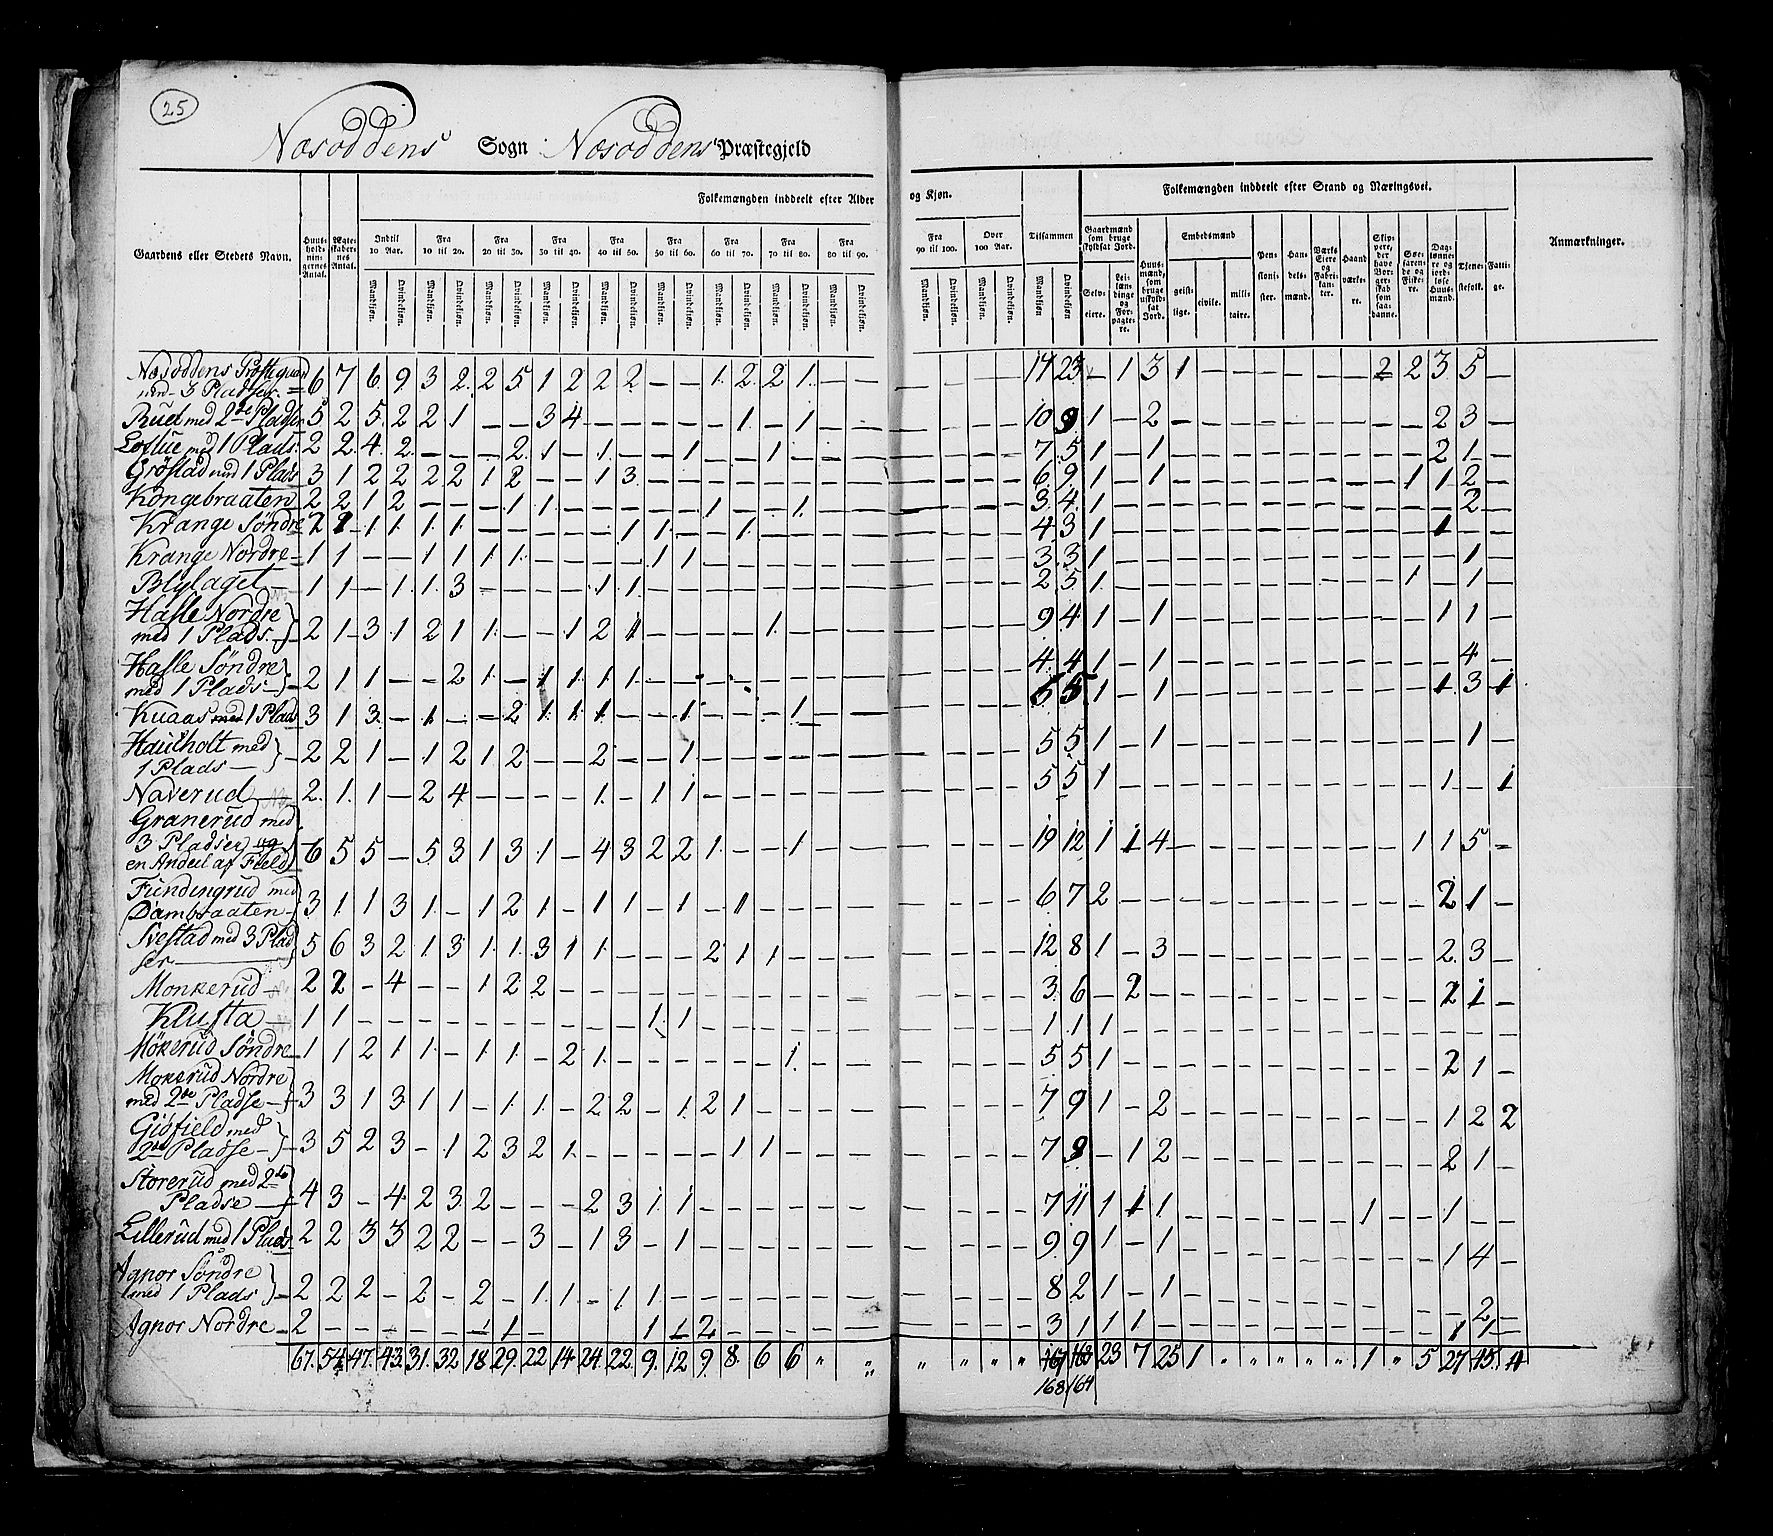 25
Næsoddens Sogn Næsoddens Præstegjeld
Folkemængden inddeelt efter Alder og Kjøn. Folkemængden inddeelt efter Stand og Næringsvei.
Gaardens eller Stedets Navn. Huusholdningernes Antal. Ægteskabernes Antal. Indtil 10 Aar. Fra 10 til 20. Fra 20 til 30. Fra 30 til 40. Fra 40 til 50. Fra 50 til 60. Fra 60 til 70. Fra 70 til 80. Fra 80 til 90. Fra 90 til 100. Over 100 Aar. Tilsammen Gaardmænd som bruge skyldsat Jord. Huusmænd, som bruge uskyldsat Jord. Embedsmænd Pensionister. Handelsmænd. Værks Eiere og Fabrikanter. Haandværkere. Skippere, der have Borgerskab som saadanne. Søefarende og Fiskere. Daglønnere og jordløse Huusmænd. Tjenestefolk. Fattige. Anmærkninger.
Mandkjøn. Qvindekjøn. Mandkjøn. Qvindekjøn. Mandkjøn. Qvindekjøn. Mandkjøn. Qvindekjøn. Mandkjøn. Qvindekjøn. Mandkjøn. Qvindekjøn. Mandkjøn. Qvindekjøn. Mandkjøn. Qvindekjøn. Mandkjøn. Qvindekjøn. Mandkjøn. Qvindekjøn. Mandkjøn. Qvindekjøn. Mandkjøn Qvindekjøn. Selveiere. Leilændinge og Forpagtere. geistlige. civile. militaire.
Næsoddens Præstegaard
med 3 Pladser. 6 7 6 9 3 2 2 5 1 2 2 2 – – 1 2 2 1 – – – – – – 17 23 – 1 3 1 – – – – – – 2 2 3 5 –
Rud med 2de Pladser 5 2 5 2 2 1 – – 3 4 – – – – – 1 – 1 – – – – – – 10 9 1 – 2 – – – – – – – – – 2 3 –
med 1 Plads 2 2 4 2 – – – 2 1 – 1 – – 1 – 1 – 1 – – – – – – 7 5 1 – 1 – – – – – – – – – 2 1 –
Gröstad med 1 Plads 3 1 2 2 2 2 1 2 – – 1 3 – – – – – – – – – – – – 6 9 1 – 1 – – – – – – – – 1 1 2 –
Kongebraaten 2 2 1 2 – – – 1 1 – – – – – 1 – – 1 – – – – – – 3 4 1 – – – – – – – – – – – – 2 –
Krange Söndre 2 2 1 1 1 1 – – – – – 1 1 – – 1 – – – – – – – – 4 3 1 – – – – – – – – – – – 1 – –
Krange Nordre 1 1 – – 1 1 1 1 – – – – 1 1 – – – – – – – – – – 3 3 1 – – – – – – – – – – – – 1 –
Blylaget 1 1 – 1 1 3 – – – – 1 1 – – – – – – – – – – – – 2 5 1 – – – – – – – – – – 1 – 1 –
Hasle Nordre
med 1 Plads. 2 1 3 1 2 1 1 – – 1 2 1 – – – – 1 – – – – – – – 9 4 1 – 1 – – – – – – – – – 1 1 –
Hasle Söndre
med 1 Plads 2 1 1 – – 2 1 – 1 1 1 1 – – – – – – – – – – – – 4 4 1 – 1 – – – – – – – – – – 4 –
med 1 Plads 3 1 3 – 1 – – 2 1 1 1 – – 1 – – – 1 – – – – – – 5 5 1 – 1 – – – – – – – – – 1 3 1
med
1 Plads 2 2 1 – 1 2 1 2 – – 2 – – 1 – – – – – – – – – – 5 5 1 – 1 – – – – – – – – – – 1 –
Naverud 2 1 1 – 2 4 – – – – 1 – 1 1 – – – – – – – – – – 5 5 1 – – – – – – – – – – – 1 – 1
Granerud med
3 Pladser og
en Andeel af Field 6 5 5 – 5 3 1 3 1 – 4 3 2 2 1 – – 1 – – – – – – 19 12 1 1 4 – – – – – – – – 1 1 5 –
Fundingrud med
Dambraaten 3 1 1 3 1 – 1 2 1 – 1 1 – 1 – 1 – – – – – – – – 6 7 2 – – – – – – – – – – – 2 1 –
Svestad med 3 Plad
ser 5 6 3 2 1 3 1 1 3 1 1 – – – 2 1 1 – – – – – – – 12 8 1 – 3 – – – – – – – – – 2 3 –
Monkerud 2 2 – 4 – – 1 2 2 – – – – – – – – – – – – – – – 3 6 – 2 – – – – – – – – – – 2 1 –
Klufta 1 1 – – – – – – – – – – 1 1 – – – – – – – – – – 1 1 1 – – – – – – – – – – – – – –
Mökerud Söndre 1 1 2 1 1 – 1 1 – 2 1 – – – – – – 1 – – – – – – 5 5 1 – – – – – – – – – – – 2 1 –
Mokerud Nordre
med 2de Pladse 3 3 1 3 1 1 – 1 1 – 2 2 – 1 2 1 – – – – – – – – 7 9 1 – 2 – – – – – – – – – 1 2 2
Giöfield med
2de Pladse 3 5 2 3 – 1 2 3 2 1 – – – – – 1 1 – – – – – – – 7 9 – 1 2 – – – – – – – – – 2 1 –
Storerud med 2de
Pladse 4 3 – 4 2 3 2 – – – 2 3 1 1 – – – – – – – – – – 7 11 1 1 1 – – – – – – 1 – – 1 – –
Lillerud med 1 Plads 2 2 3 3 2 2 – – 3 – 1 3 – 1 – – – – – – – – – – 9 9 1 – 1 – – – – – – – – – 1 4 –
Agnor Söndre
med 1 Plads 2 2 2 – 2 – 2 – 1 1 – 1 1 – – – – – – – – – – – 8 2 1 – 1 – – – – – – – – – – 2 –
Agnor Nordre 2 – – – – – – 1 – – – – 1 – 2 – – – – – – – – – 3 1 1 1 – – – – – – – – – – 1 1 –
67. 54 47. 43. 31. 32 18 29. 22 14 24. 22. 9. 12 9. 8. 6 6 " " " " " " 167 163 23 7 25 1 " " " " " 1 " 5 27 45. 4
168 164